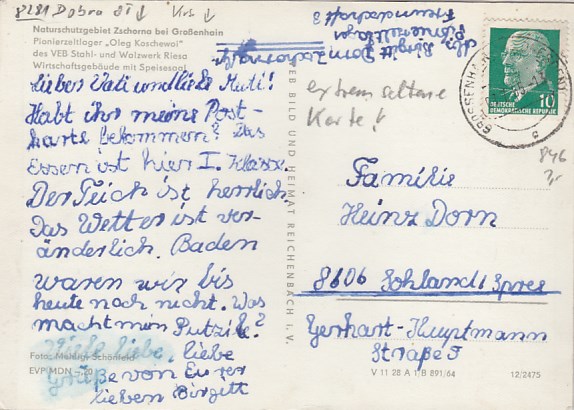 8281 Dobra
Naturschutzgebiet Zschorna bei Großenhain
Pionierzeltlager „Oleg Koschewoi"
des VEB Stahl- und Walzwerk Riesa
Wirtschaftsgebäude mit Speisesaal
Lieber Vati und liebe Muti!
Habt ihr meine Post-
karte bekommen? Das
Essen ist hier I. Klasse.
Der Teich ist herrlich.
Das Wetter ist ver-
änderlich. Baden
waren wir bis
heute noch nicht. Was
macht mein Putzi?
Viele liebe, liebe
Grüße von Eurer
lieben Birgitt
Foto: Meißen Schönfeld
EVP MDN -,20
VEB BILD UND HEIMAT REICHENBACH I. V.
Birgitt Dorn
Pionierzeltlager
Freundschaft
DEUTSCHE
DEMOKRATISCHE REPUBLIK
10
GROSSENHAIN
extrem seltene
Karte!
846
Familie
Heinz Dorn
8606 Sohland/Spree
Gerhart-Hauptmann
Straße
V 11 28 A 1/B 891/64
12/2475